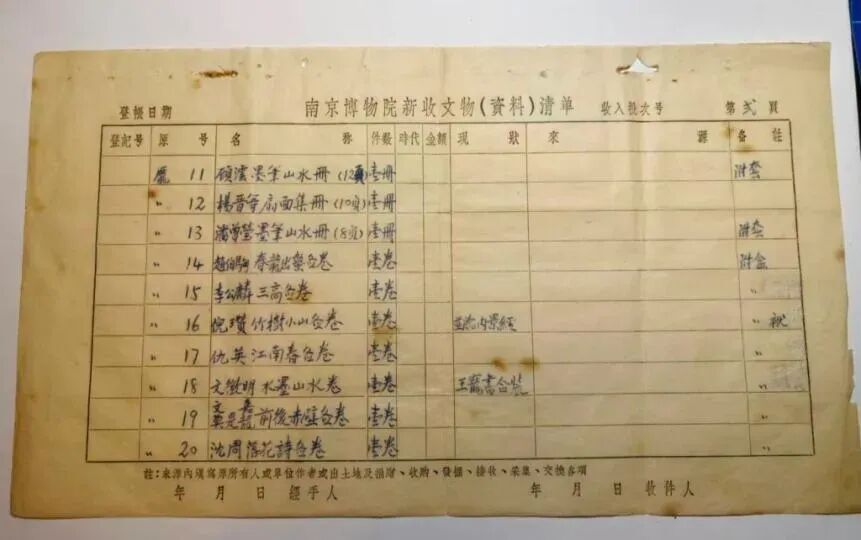 南京博物院新收文物(資料)清单
登帳日期 收入批次号 第弍頁
登記号 原号 名称 件数 時代 金額 現狀 來源 备註
龐 11 顾澐墨笔山水册(12頁) 壹册 附套
〃 12 楊晋等扇面集册(10頁) 壹册
〃 13 潘曾瑩墨笔山水册(8頁) 壹册 附套
〃 14 趙伯駒春龍出蟄备卷 壹卷 附盒
〃 15 李公麟三高备卷 壹卷 〃
〃 16 倪瓚竹樹小山备卷 壹卷 〃
〃 17 仇英江南春备卷 壹卷 〃
〃 18 文徵明水墨山水卷 壹卷 王寵書合裝 〃
〃 19 文嘉 莫是龍前後赤壁备卷 壹卷 〃
〃 20 沈周落花詩备卷 壹卷 〃
註:來源內填寫原所有人或單位作者或出土地及捐贈、收購、發掘、接收、采集、交換各項
年 月 日 經手人 年 月 日 收件人